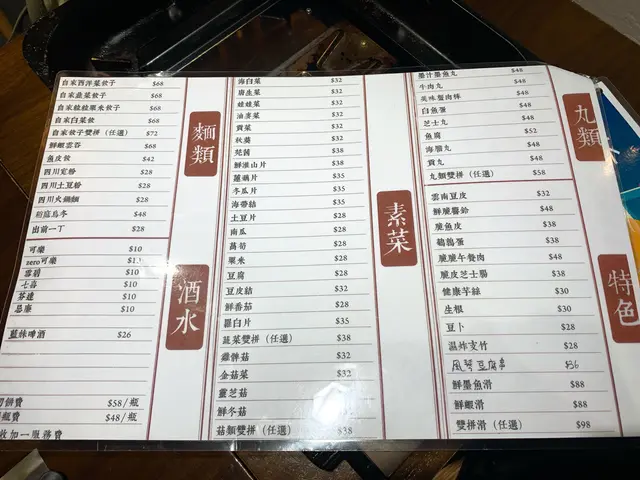 自家西洋菜餃子 $68
自家韭菜餃子 $68
自家粒粒粟米餃子 $68
自家白菜餃 $68
自家餃子雙拼(任選) $72
鮮蝦雲吞 $68
魚皮餃 $42
四川寬粉 $28
四川土豆粉 $28
四川火鍋麵 $28
稻庭烏冬 $48
出前一丁 $28
麵類
可樂 $10
zero可樂
雪碧 $10
七喜 $10
芬達 $10
忌廉 $10
藍妹啤酒 $26
酒水
$58/瓶
瓶費 $48/瓶
收加一服務費
海白菜 $32
唐生菜 $32
娃娃菜 $32
油麥菜 $32
黃菜 $32
秋葵 $32
茼蒿 $38
鮮淮山片 $38
蓮藕片 $35
冬瓜片 $35
海帶結 $35
土豆片 $28
南瓜 $28
萵筍 $28
粟米 $28
豆腐 $28
豆皮結 $32
鮮番茄 $28
蘿白片 $35
蔬菜雙拼(任選) $38
雞髀菇 $32
金菇菜 $32
靈芝菇 $32
鮮冬菇
菇類雙拼(任選) $38
素菜
墨汁墨魚丸 $48
牛肉丸 $48
美味蟹肉棒 $48
白魚蛋 $48
芝士丸 $48
魚腐 $52
海膽丸 $48
貢丸 $48
丸類雙拼(任選) $58
丸類
雲南豆皮 $32
鮮脆響鈴 $48
脆魚皮 $38
鵪鶉蛋 $38
脆脆午餐肉 $48
脆皮芝士腸 $38
健康芋絲 $30
生根 $30
豆卜 $28
温炸支竹 $28
風琴豆腐串 $36
鮮墨魚滑 $88
鮮蝦滑 $88
雙拼滑(任選) $98
特色